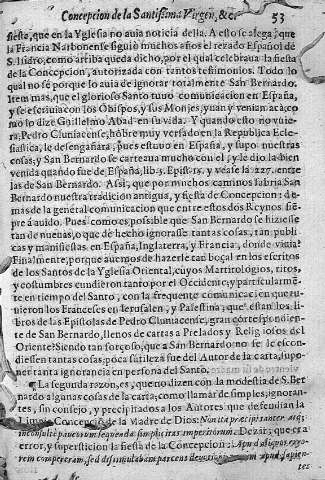 Concepcion de la Santissima Virgen, &c. 53
fiesta, que en la Yglesia no auia noticia della. A esto se alega; que
la Francia Narbonense siguiò muchos años el rezado Español de
S. Isidro, como arriba queda dicho, por el qual celebraua la fiesta
de la Concepcion, autorizada con tantos testimonios. Todo lo
qual no sè porque lo auia de ignorar totalmente San Bernardo.
Item mas, que el glorioso Santo tuuo comunicacion en España,
y se escriuia con los Obispos, y sus Monjes, yuan y venian acà, co
mo lo dize Guillelmo Abad en su vida. Y quando esto no vuie-
ra, Pedro Cluniacense, hõbre muy versado en la Republica Ecle-
siastica, le desengañara, pues estuuo en España, y supo nuestras
cosas; y San Bernardo se carteaua mucho con el; y le dio la bien
venida quando fue de España, lib. 3. Epist. 15. y vease la 227. entre
las de San Bernardo. Assi, que por muchos caminos sabria San
Bernardo nuestra tradicion antigua, y fiesta de Concepcion: de-
mas de la general comunicacion que entre estos dos Reynos siem
pre à auido. Pues como es possible que San Bernardo se hiziesse
tan de nueuas, o que de hecho ignorasse tantas cosas, tan publi-
cas y manifiestas en España, Inglaterra, y Francia, donde viuia?
Finalmente, porque auemos de hazerle tan boçal en los escritos
de los Santos de la Yglesia Oriental, cuyos Martirologios, ritos,
y costumbres cundieron tanto por el Occidente; y particularmẽ
te en tiempo del Santo, con la frequente comunicaciõ que tu-
uieron los Franceses en Ierusalen, y Palestina; que estan los li-
bros de las Epistolas de Pedro Cluniacense, gran correspondiente
de San Bernardo, llenos de cartas a Prelados y Religiosos del
Oriente? Siendo tan forçoso, que a San Bernardo no se le escon-
diessen tantas cosas; poca sutileza fue del Autor de la carta, supo-
ner tanta ignorancia en persona del Santo.
¶ La segunda razon, es, que no dizen con la modestia de S. Ber
nardo algunas cosas de la carta; como llamar de simples, ignoran-
tes, sin consejo, y precipitados los Autores que defendian la
Concepcion de la Madre de Dios:
simplicitas imperitorum. Dezir; que era
error, y supersticion la fiesta de la Concepcion:
compereram, sed dissimulabam parcens deuotioni
tes